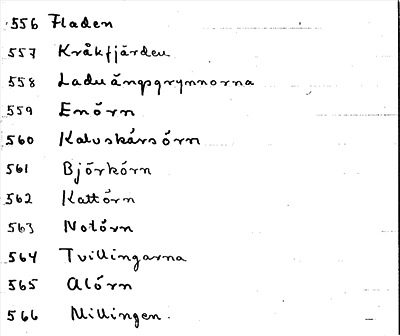 556 Fladen
557 Kråkfjärden
558 Laduängsgrynnorna
559 Enörn
560 Kalvskärsörn
561 Björkörn
562 Kattörn
563 Notörn
564 Tvillingarna
565 Alörn
566 Millingen.